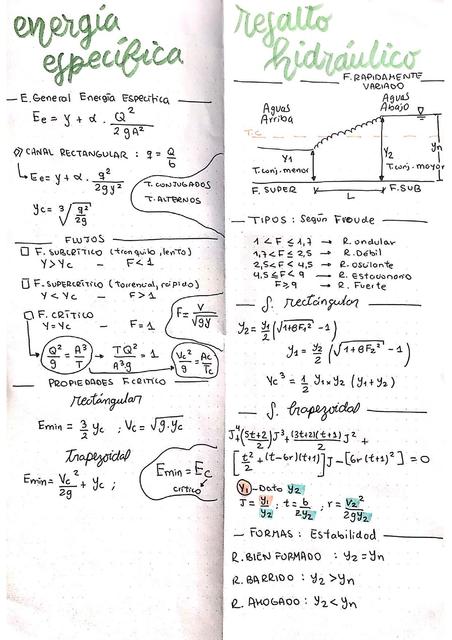 energía
específica
E. General Energía Específica
Ee = y + α · Q²/2gA²
CANAL RECTANGULAR : q = Q/b
Ee = y + α · q²/2gy²
T. CONJUGADOS
T. ALTERNOS
yc = ³√q²/2g
FLUJOS
F. SUBCRÍTICO (tranquilo, lento)
y > yc - F < 1
F. SUPERCRÍTICO (torrencial, rápido)
y < yc - F > 1
F. CRÍTICO
y = yc - F = 1
F = V/√gy
Q²/g = A³/T → TQ²/A³g = 1
Vc²/g = Ac/Tc
PROPIEDADES F CRÍTICO
rectángular
Emin = 3/2 yc ; Vc = √g·yc
Trapezoidal
Emin = Vc²/2g + yc ;
Emin = Ec
CRÍTICO
resalto
hidráulico
F. RAPIDAMENTE
VARIADO
Aguas
Arriba
Aguas
Abajo
T.C
y1
y2
yn
T. conj. menor
T. conj. mayor
F. SUPER
L
F. SUB
TIPOS : Según Froude
1 < F ≤ 1,7 → R. ondular
1,7 < F ≤ 2,5 → R. Débil
2,5 < F < 4,5 → R. oscilante
4,5 ≤ F < 9 → R. Estacionario
F ≥ 9 → R. Fuerte
S. rectángular
y2 = y1/2 (√1+8F1² - 1)
y1 = y2/2 (√1+8F2² - 1)
yc³ = 1/2 y1 x y2 (y1 + y2)
S. trapezoidal
J⁴ + (5t+2)/2 J³ + (3t+2)(t+1)/2 J² +
[t²/2 + (t-6r)(t+1)] J - [6r(t+1)²] = 0
y1 - Dato y2
J = y1/y2 ; t = b/zy2 ; r = v2²/2gy2
FORMAS : Estabilidad
R. BIEN FORMADO : y2 = yn
R. BARRIDO : y2 > yn
R. AHOGADO : y2 < yn